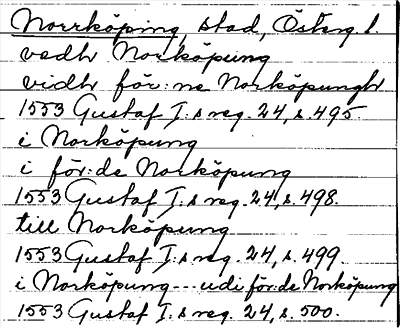 Norrköping, stad, Österg. l.
vedh Norköpung
vidh för:ne Norköpungh
1553 Gustaf I:s reg. 24, s. 495.
i Norköpung
i för:de Norköpung
1553 Gustaf I:s reg. 24, s. 498.
till Norköpung
1553 Gustaf I:s reg. 24, s. 499.
i Norköpung --- udi för:de Norköpung
1553 Gustaf I:s reg. 24, s. 500.